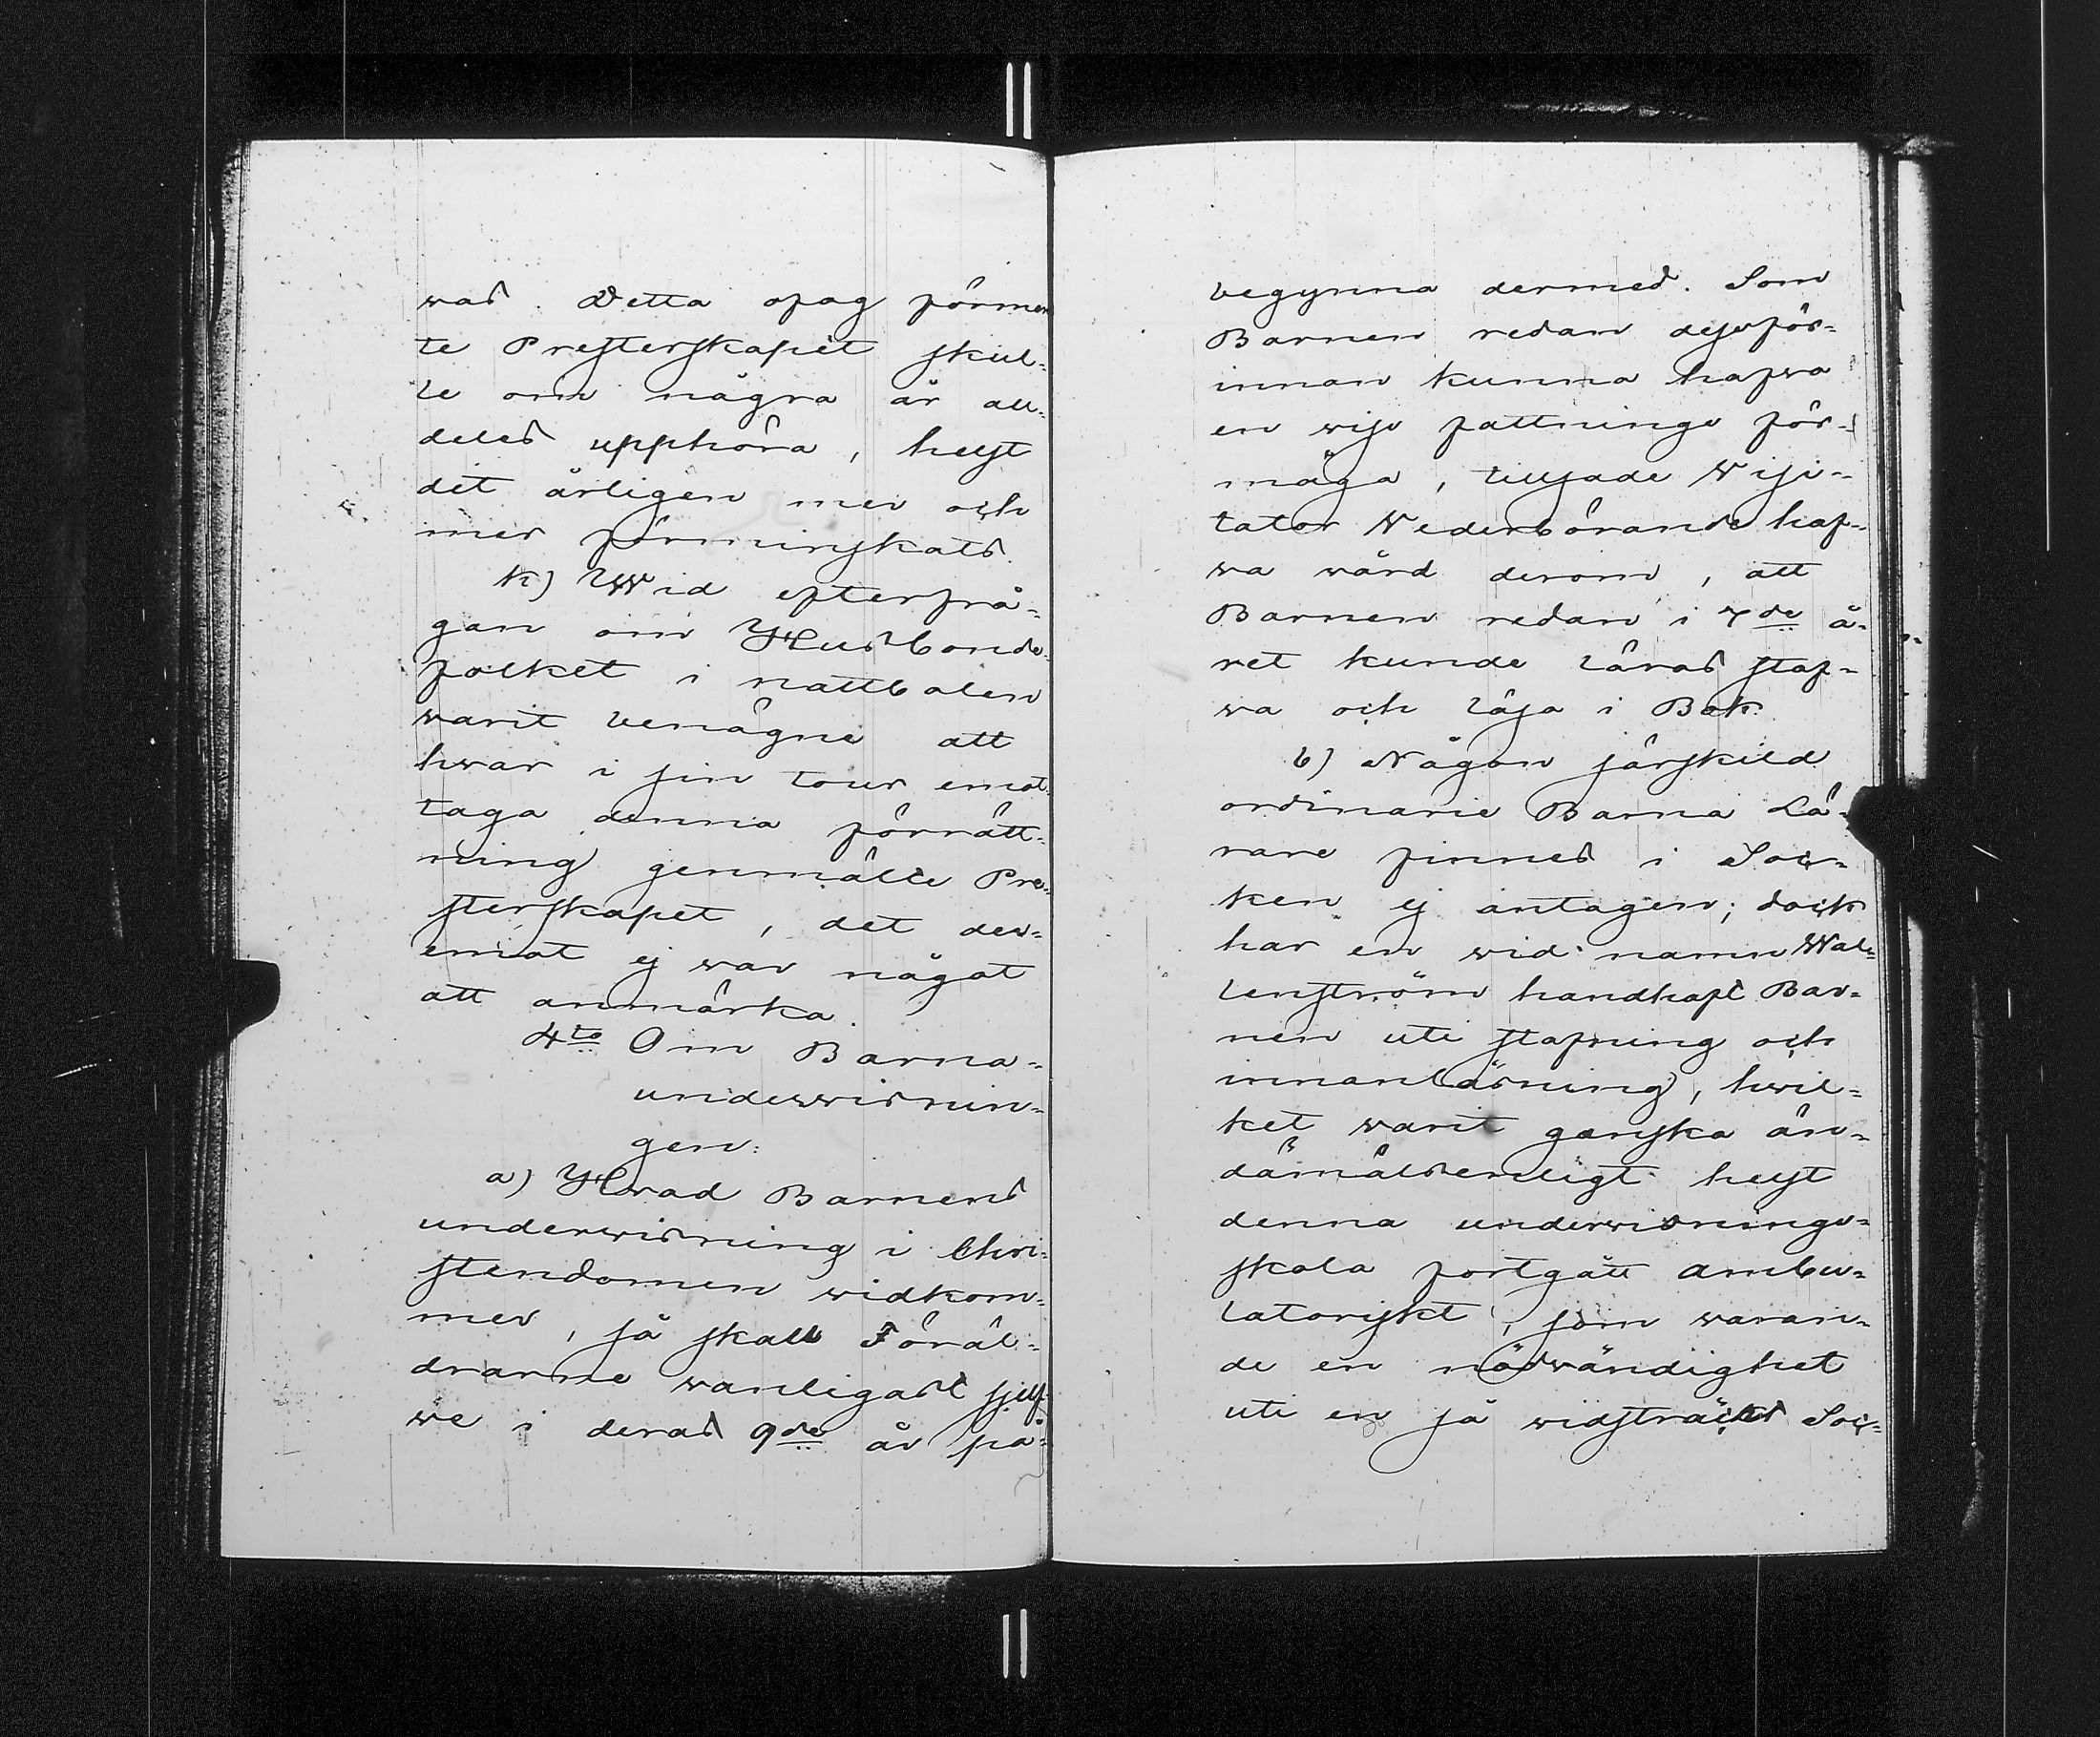 was. Detta ofog förmen
te Presterskapet skul-
le om några år all-
deles upphöra, helst
det årligen mer och
mer förminskats.
k) Wid efterfrå-
gan om Husbonde-
folket i nattbolen
warit benägne att
hwar i sin tour emot-
taga denna förrätt-
ning genmälte Pre-
sterskapet, det der-
emot ej war något
att anmärka.
4to Om Barna-
underwisnin-
gen.
a) Hwad Barnens
underwisning i Chri-
stendomen widkom-
mer, så skall Föräl-
drarne wanligast sjelf-
we i deras 9de år på-
begynna dermed. Som
Barnen redan dessför-
innan kunna hafwa
en wiss fattnings för-
måga, tillsade Visi-
tator Wederbörande haf-
wa wård derom, att
Barnen redan i 7de å-
ret kunde läras staf-
wa och läsa i Bok.
b) Någon särskild
ordinarie Barna Lä-
rare finnes i Soc-
ken ej antagen; dock
har en wid namn Wal-
lenström handhaft Bar-
nen uti stafning och
innanläsning, hwil-
ket warit ganska än-
dämålsenligt helst
denna underwisnings-
skola fortgått ambu-
latoriskt, som waran-
de en nödwändighet
uti en så widsträckt Soc-